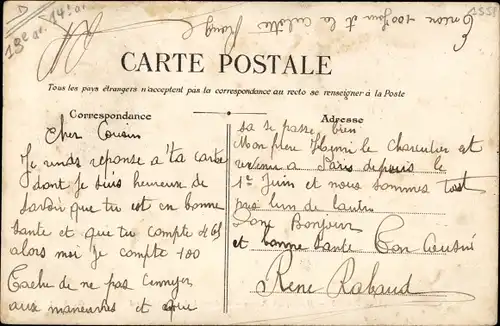 Encore 100 jour et la culotte Rouge
CARTE POSTALE
Tous les pays étrangers n'acceptent pas la correspondance au recto se renseigner à la Poste
Correspondance
Cher Cousin
Je rends reponse a ta carte
dont je suis heureuse de
savoir que tu est en bonne
sante et que tu compte
alors moi je compte 100
Tache de ne pas t'ennuyer
aux maneuvres et que
Adresse
sa se passe bien
Mon frere Henri le Charcutier est
revenu a Paris depuis le
1er Juin et nous sommes tout
pres l'un de l'autre
Donc Bonjour
et bonne sante Ton Cousin
Rene Rabaud